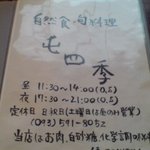 自然食・旬料理
屯四季
昼 11:30〜14:00(O.S)
夜 17:30〜21:00(O.S)
定休日 日祝日(土曜日は昼のみ営業)
(093)591-8052
当店はお肉、白砂糖、化学調